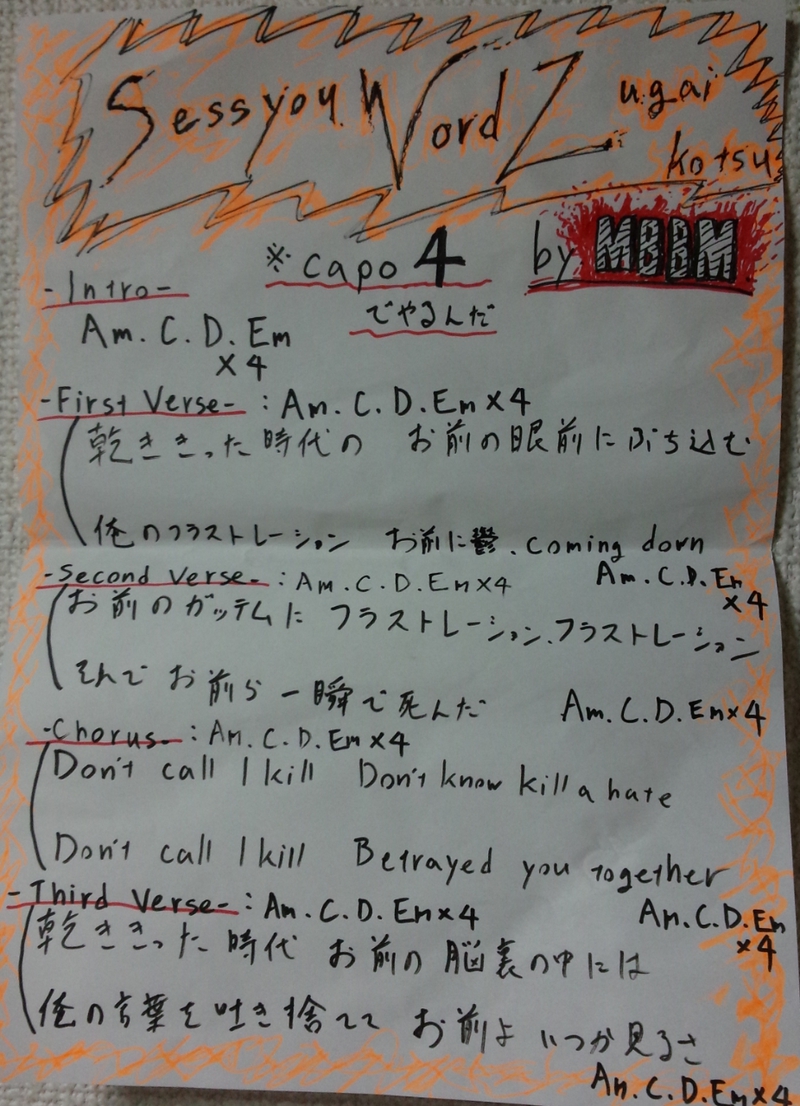 Sessyou Word Zugai kotsu
※capo 4 by MBBM
でやるんだ
-Intro-
Am.C.D.Em
×4
-First Verse- : Am.C.D.Em×4
乾ききった時代の お前の眼前にぶち込む
俺のフラストレーション お前に鬱、coming down
Am.C.D.Em
×4
-Second Verse- : Am.C.D.Em×4
お前のガッテムに フラストレーション、フラストレーション
そんで お前ら 一瞬で死んだ Am.C.D.Em×4
-Chorus- : Am.C.D.Em×4
Don't call I kill Don't know kill a hate
Don't call I kill Betrayed you together
Am.C.D.Em
×4
-Third Verse- : Am.C.D.Em×4
乾ききった時代 お前の脳裏の中には
俺の言葉を吐き捨てて お前よ いつか見るさ
Am.C.D.Em×4